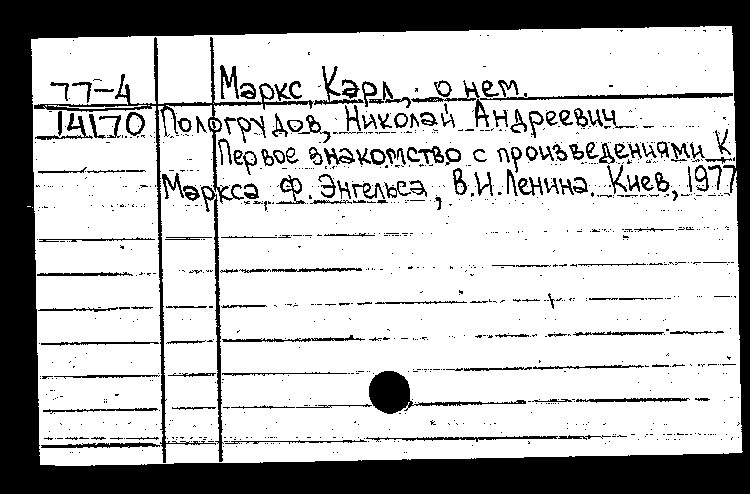 77-4 Маркс, Карл, о нем.
14170 Пологрудов, Николай Андреевич
Первое знакомство с произведениями К
Маркса, Ф. Энгельса, В.И.Ленина. Киев, 1977